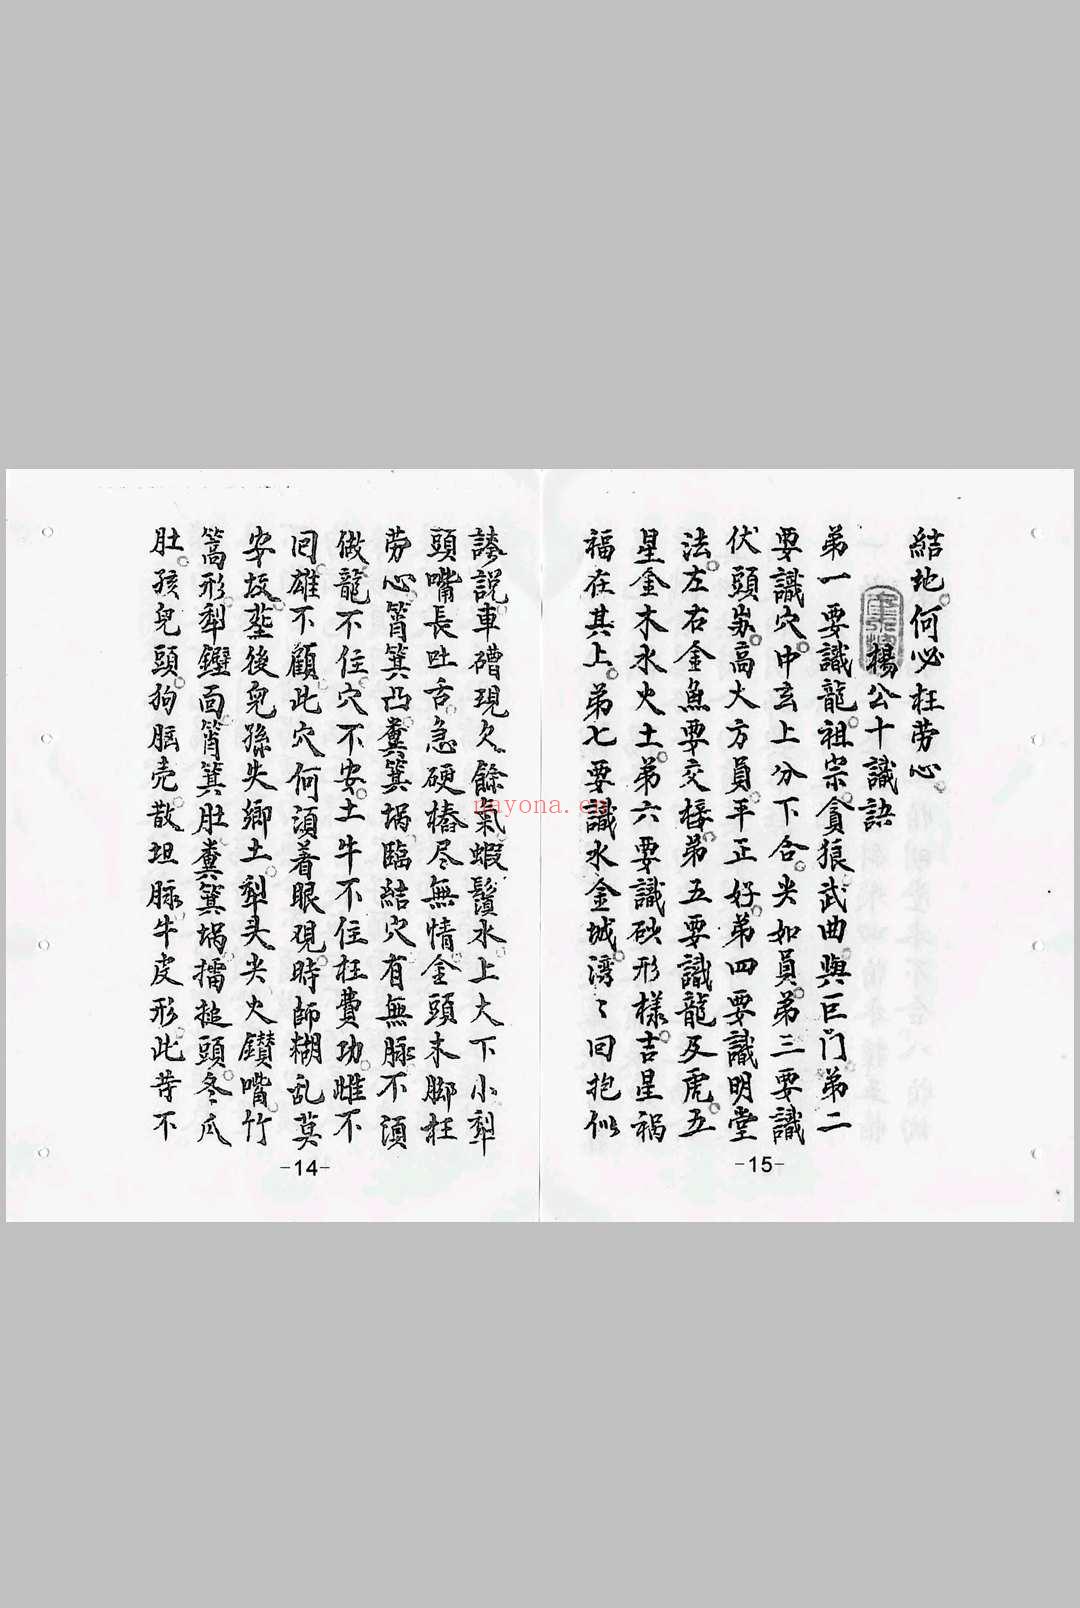 結地。何必枉劳心。
楊公十識訣
弟一要識龍祖宗。貪狼武曲與巨门。弟二
要識穴。中玄上分下合。尖如員。弟三要識
伏頭岽。高大方員平正好。弟四要識明堂
法。左右金魚要交椄。弟五要識龍及虎。五
星金木水火土。弟六要識砂形樣。吉星禍
福在其上。弟七要識水金城。湾〻回抱似
-15-
誇説。車磳現欠。餘氣蝦鬚水上大下小犁
頭嘴長吐舌。急硬樁尽無情。金頭木脚枉
劳心。筲箕凸。糞箕堝。臨結穴有無脉。不湏
做龍不住。穴不安。土牛不住枉費功。雌不
囘雄不顧。此穴何湏着眼覌。時師糊乱莫
安坟。塟後兒孫失鄉土。犁头尖火鑽嘴。竹
篙形。犁鐴面。筲箕肚。糞箕堝。擂搥頭。冬瓜
肚。孩兒頭。狗脳壳。散坦脉。牛皮形。此苛不
-14-
nayona.cn